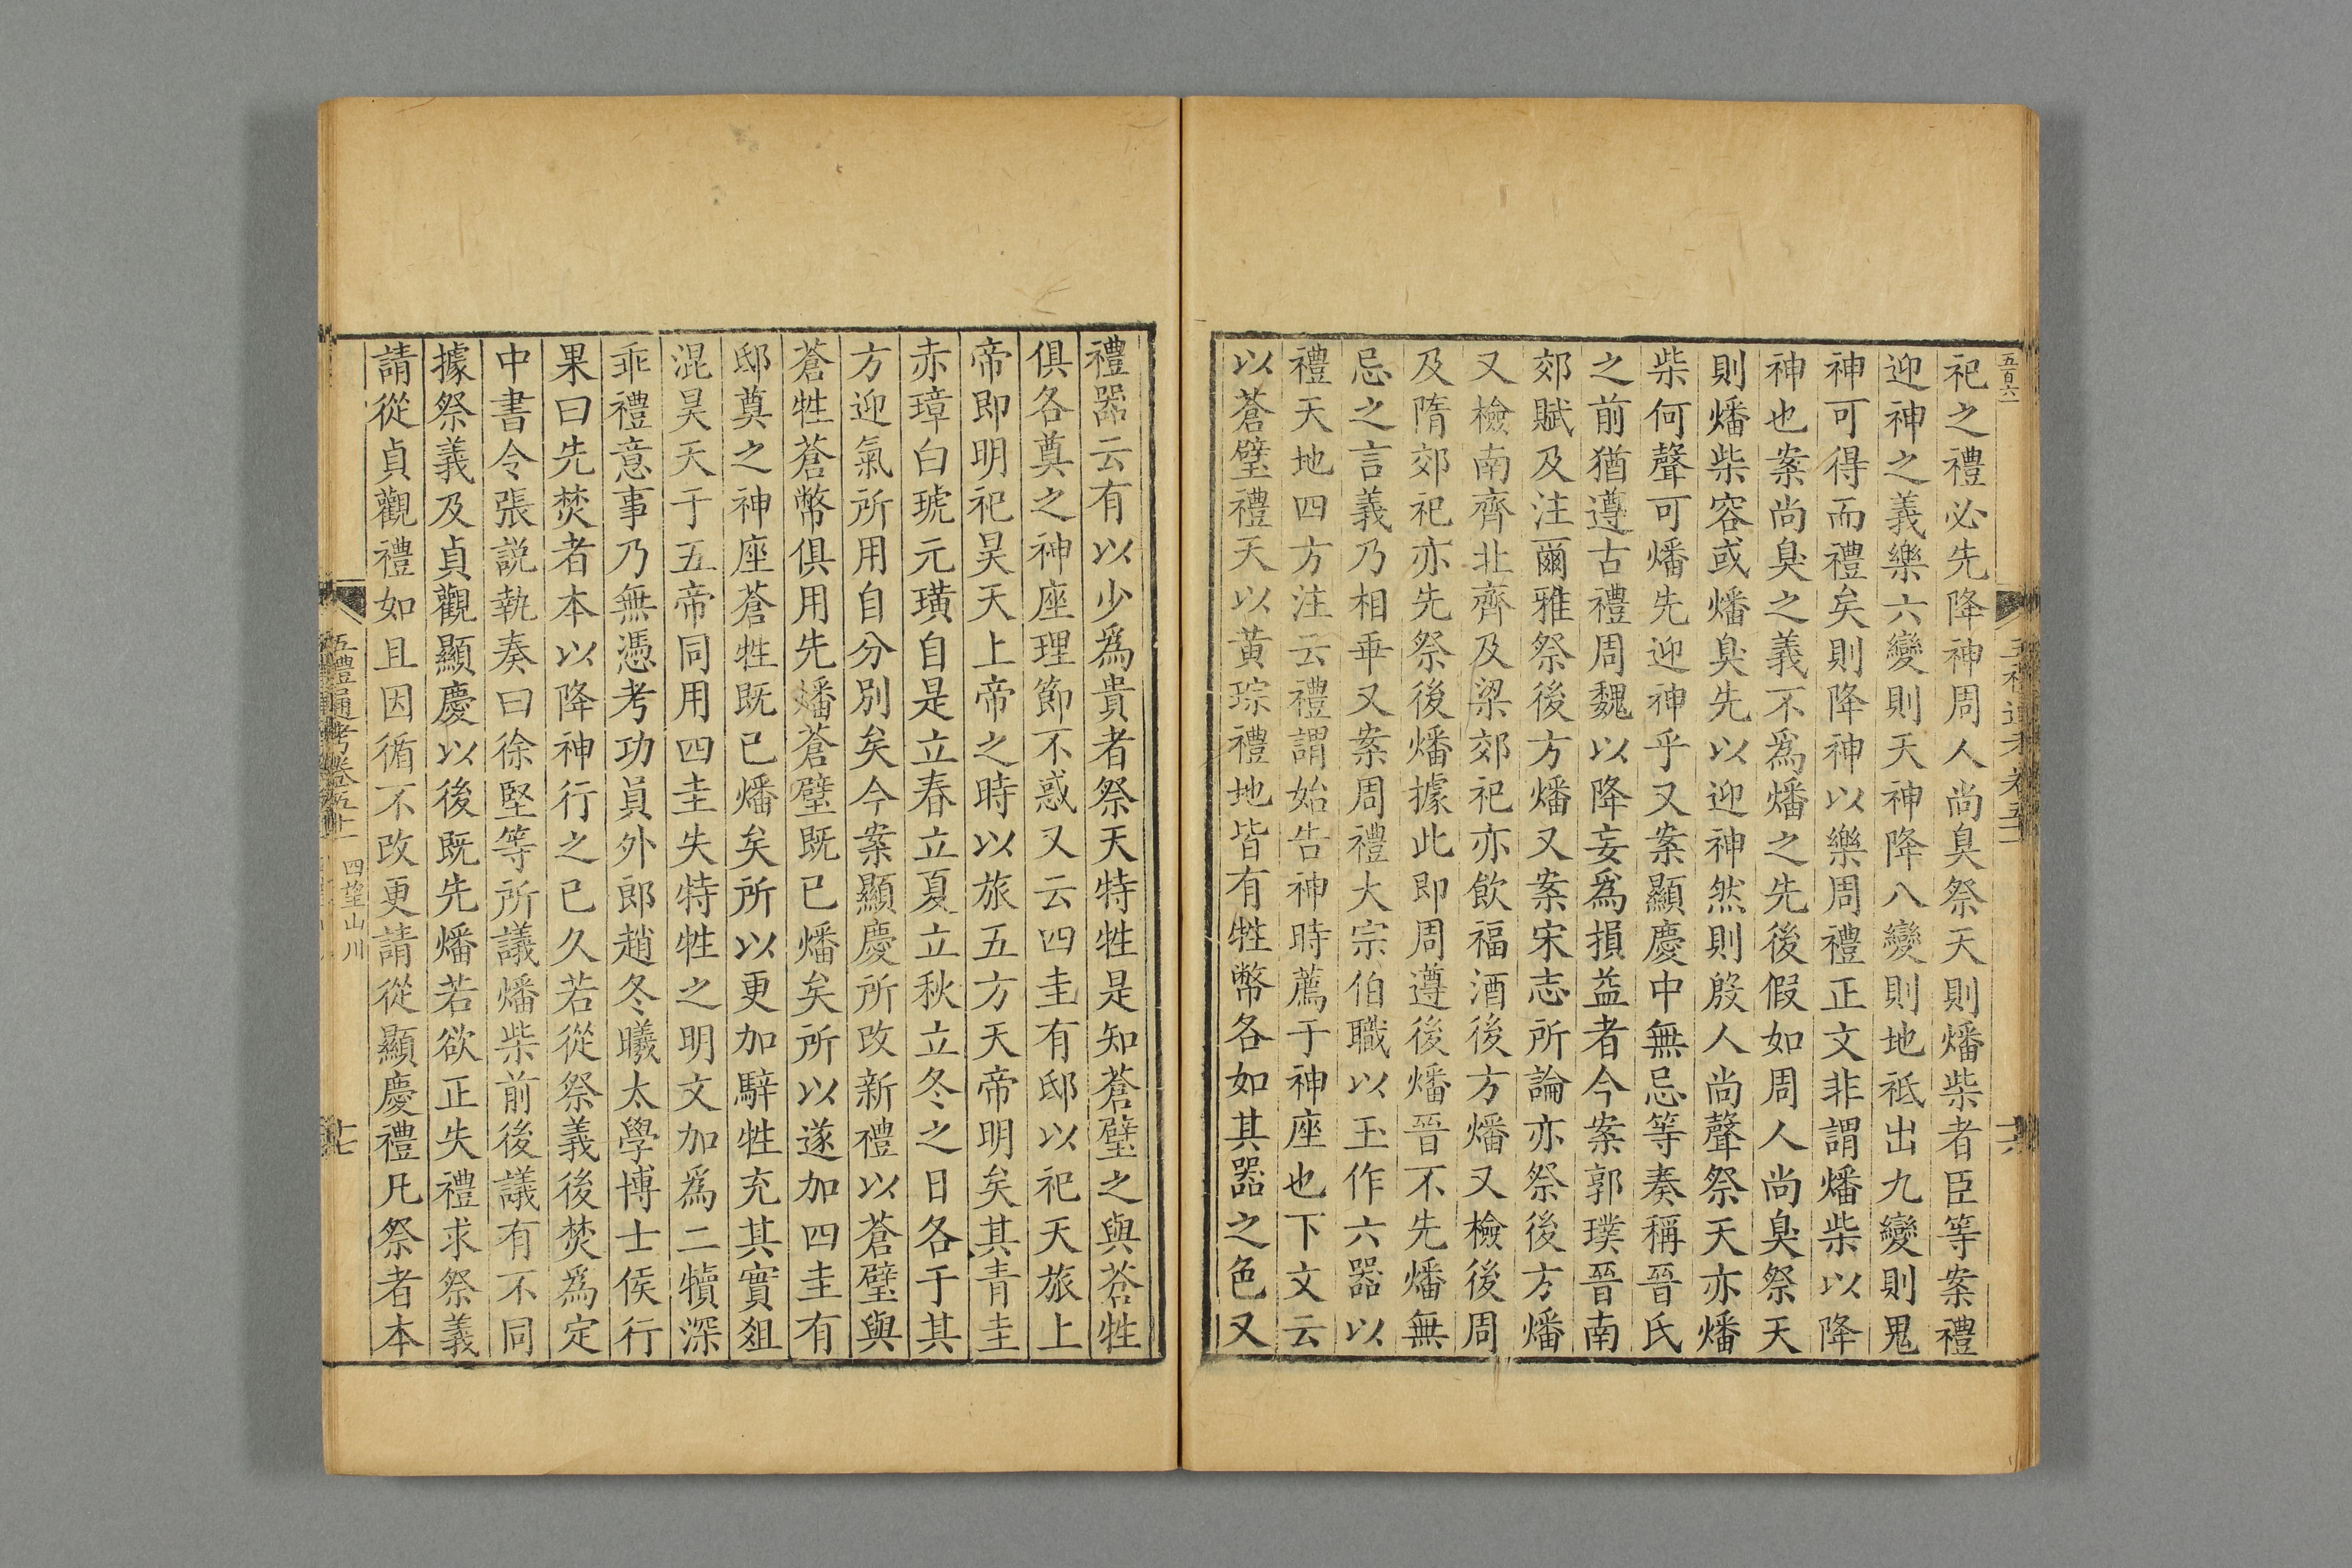 五百六一
祀之禮必先降神周人尚臭祭天則燔柴者臣等案禮
迎神之義樂六變則天神降八變則地祇出九變則鬼
神可得而禮矣則降神以樂周禮正文非謂燔柴以降
神也案尚臭之義不爲燔之先後假如周人尚臭祭天
則燔柴容或燔臭先以迎神然則殷人尚聲祭天亦燔
柴何聲可燔先迎神乎又案顯慶中無忌等奏稱晉氏
之前猶遵古禮周魏以降妄爲損益者今案郭璞晉南
郊賦及注爾雅祭後方燔又案宋志所論亦祭後方燔
又檢南齊北齊及梁郊祀亦飲福酒後方燔又檢後周
及隋郊祀亦先祭後燔據此即周遵後燔晉不先燔無
忌之言義乃相乖又案周禮大宗伯職以玉作六器以
禮天地四方注云禮謂始告神時薦于神座也下文云
以蒼璧禮天以黃琮禮地皆有牲幣各如其器之色又
禮器云有以少爲貴者祭天特牲是知蒼璧之與蒼牲
俱各奠之神座理節不惑又云四圭有邸以祀天旅上
帝即明祀昊天上帝之時以旅五方天帝明矣其青圭
赤璋白琥元璜自是立春立夏立秋立冬之日各于其
方迎氣所用自分別矣今案顯慶所改新禮以蒼璧與
蒼牲蒼幣俱用先燔蒼璧既已燔矣所以遂加四圭有
邸奠之神座蒼牲既已燔矣所以更加騂牲充其實俎
混昊天于五帝同用四圭失特牲之明文加爲二犢深
乖禮意事乃無憑考功員外郎趙冬曦太學博士侯行
果曰先焚者本以降神行之已久若從祭義後焚爲定
中書令張説執奏曰徐堅等所議燔柴前後議有不同
據祭義及貞觀顯慶以後既先燔若欲正失禮求祭義
請從貞觀禮如且因循不改更請從顯慶禮凡祭者本
五禮通考卷五十一 四望山川 十七